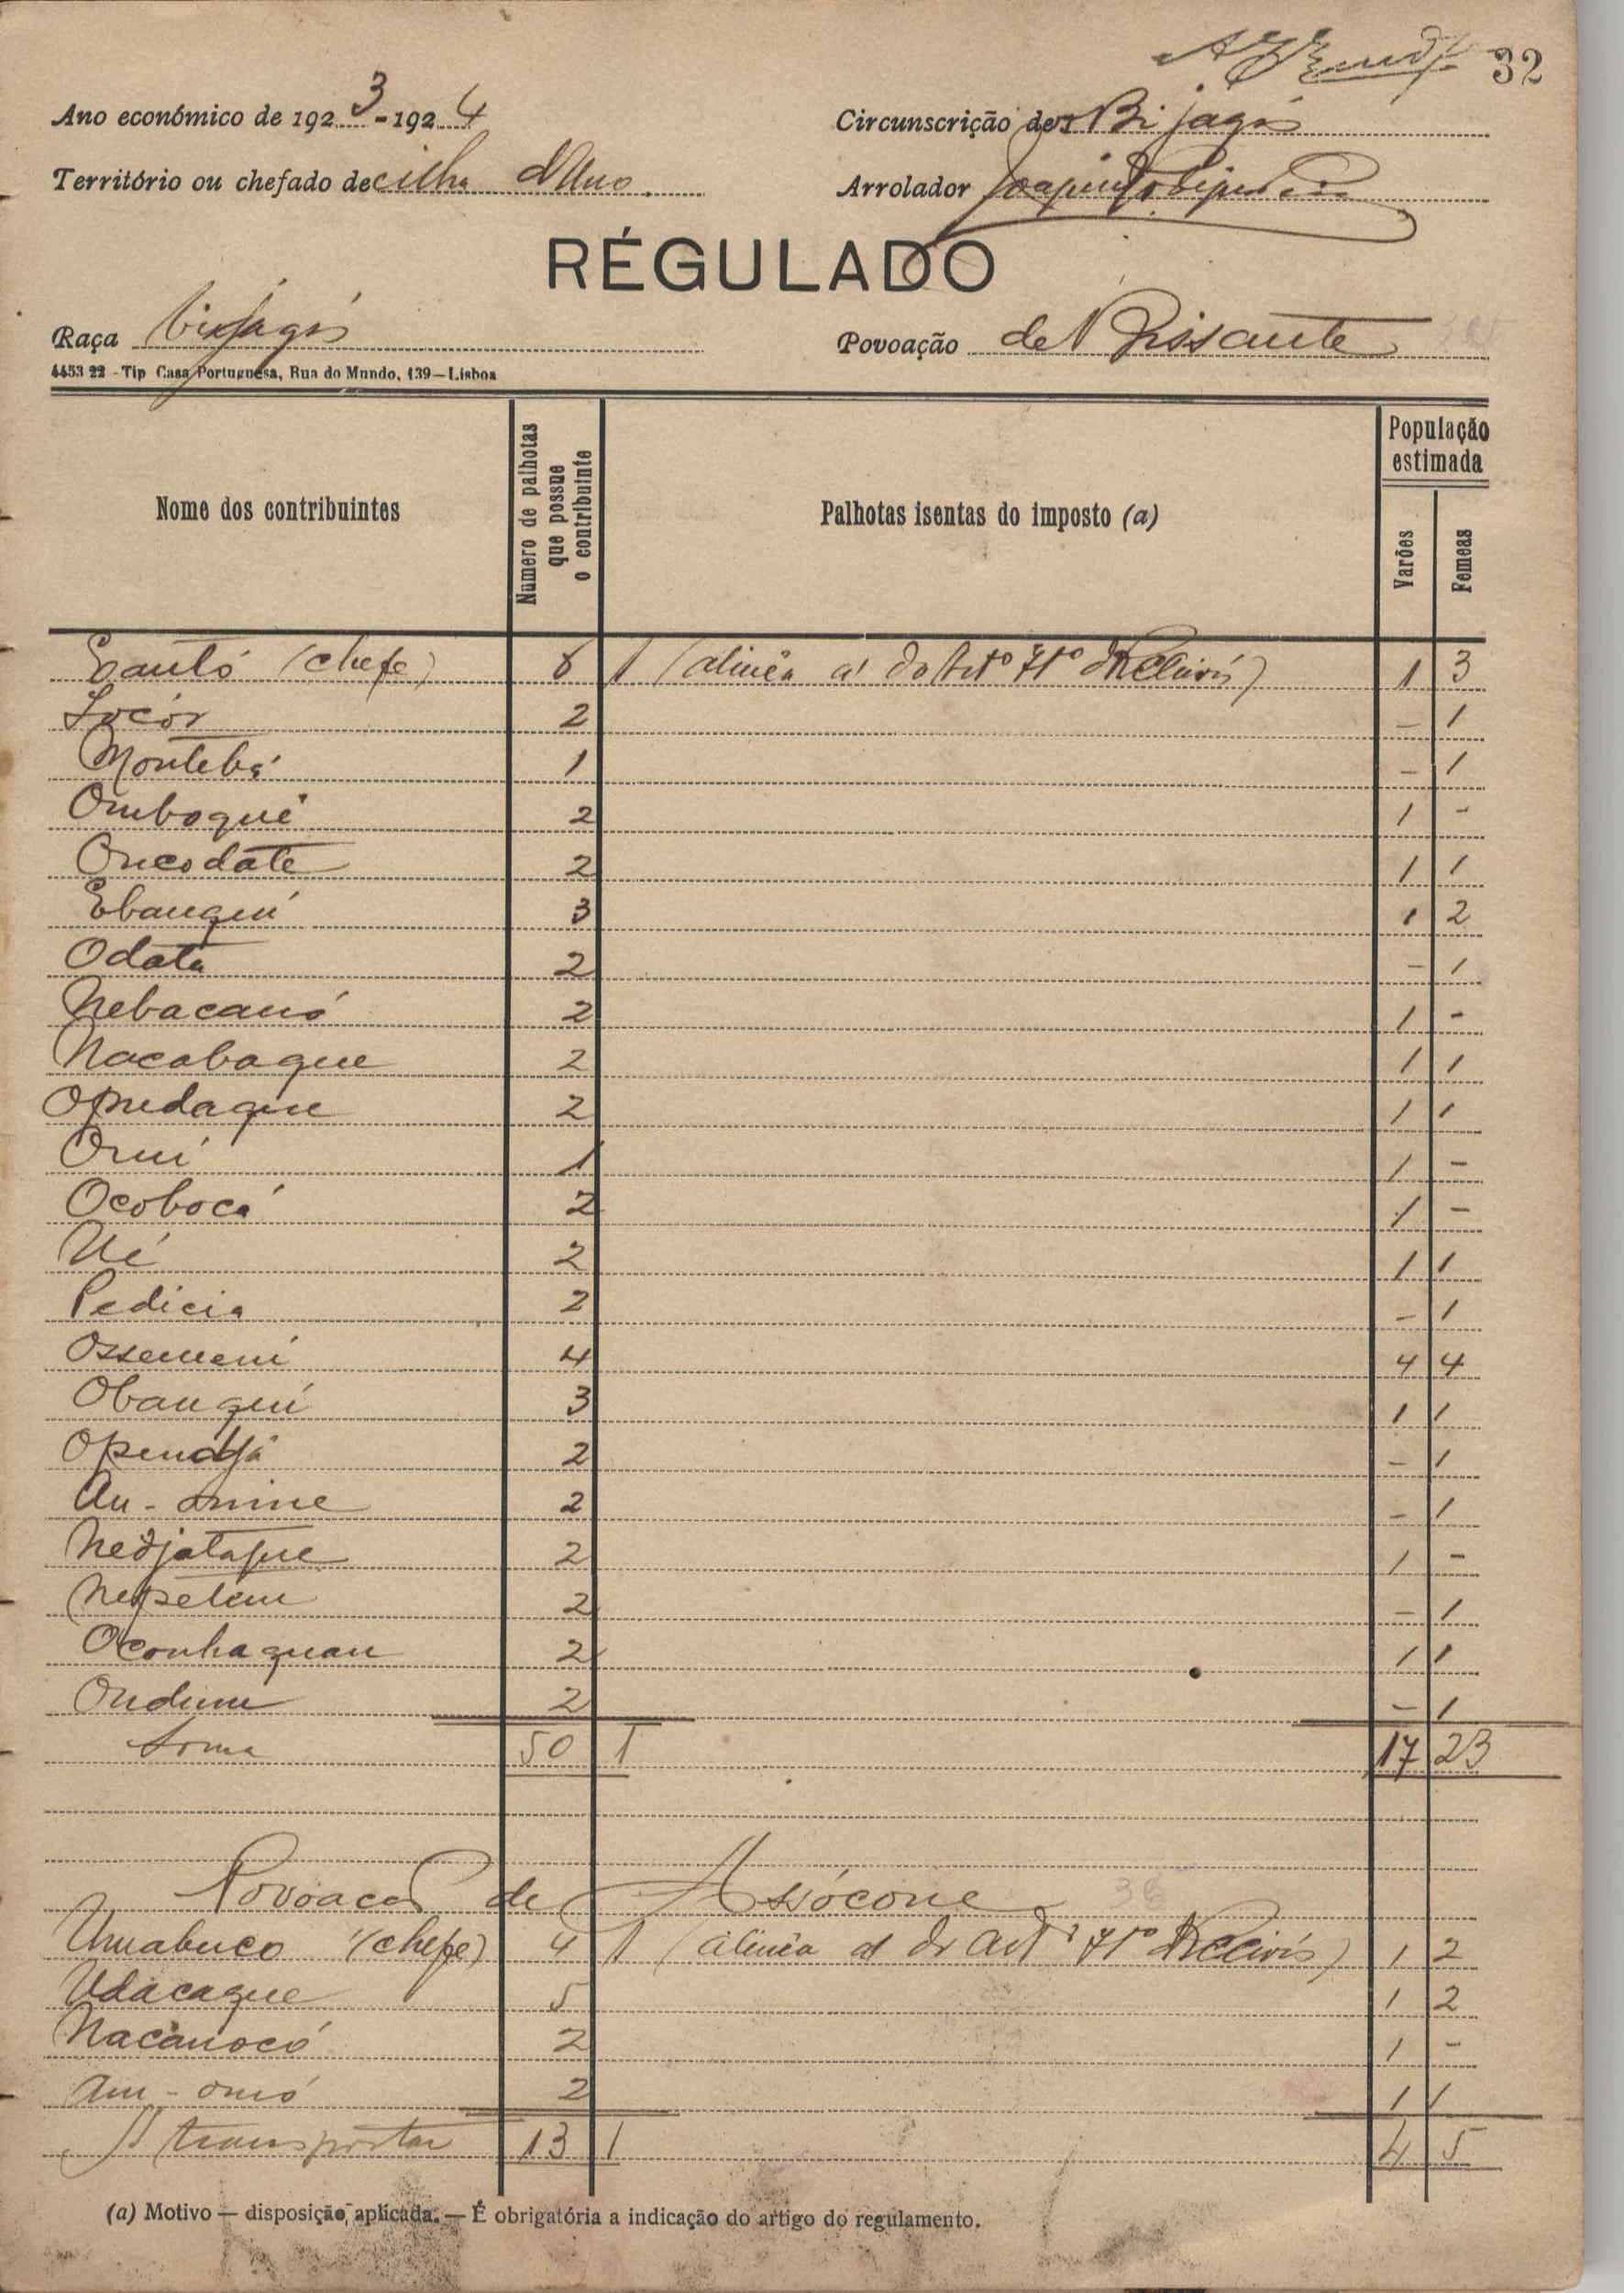 32
Ano económico de 1923-1924
Circunscrição dos Bijagós
Território ou chefado de ilha d'Uno.
Arrolador Joaquim
RÉGULADO
Raça bijagós
Povoação de N
4453 22 - Tip Casa Portuguesa, Rua do Mundo, 139—Lisboa
Nome dos contribuintes
Numero de palhotas que possue o contribuinte
Palhotas isentas do imposto (a)
População estimada
Varões
Femeas
(chefe) 6 1 (alinéa a) do Artº 71º 1 3
Socór 2 - 1
Montebá 1 - 1
Omboqué 2 1 -
Oncodate 2 1 1
Ebanqui 3 1 2
Odata 2 - 1
Nebacanó 2 1 -
Nacabaque 2 1 1
Opudaque 2 1 1
Orui 1 1 -
Ocobocá 2 1 -
Ué 2 1 1
Pedicia 2 - 1
Ossemeni 4 4 4
Obanqui 3 1 1
2 - 1
An-onine 2 - 1
Nedjataque 2 1 -
Nepelem 2 - 1
Oconhaquan 2 1 1
Ondum 2 - 1
Soma 50 1 17 23
Povoação de Assócone 36
Umabuco (chefe) 4 1 (alinéa a) do artº 71º 1 2
Udacaque 5 1 2
Nacanocó 2 1 -
Am-onó 2 1 1
A transportar 13 1 4 5
(a) Motivo — disposição aplicada. — É obrigatória a indicação do artigo do regulamento.